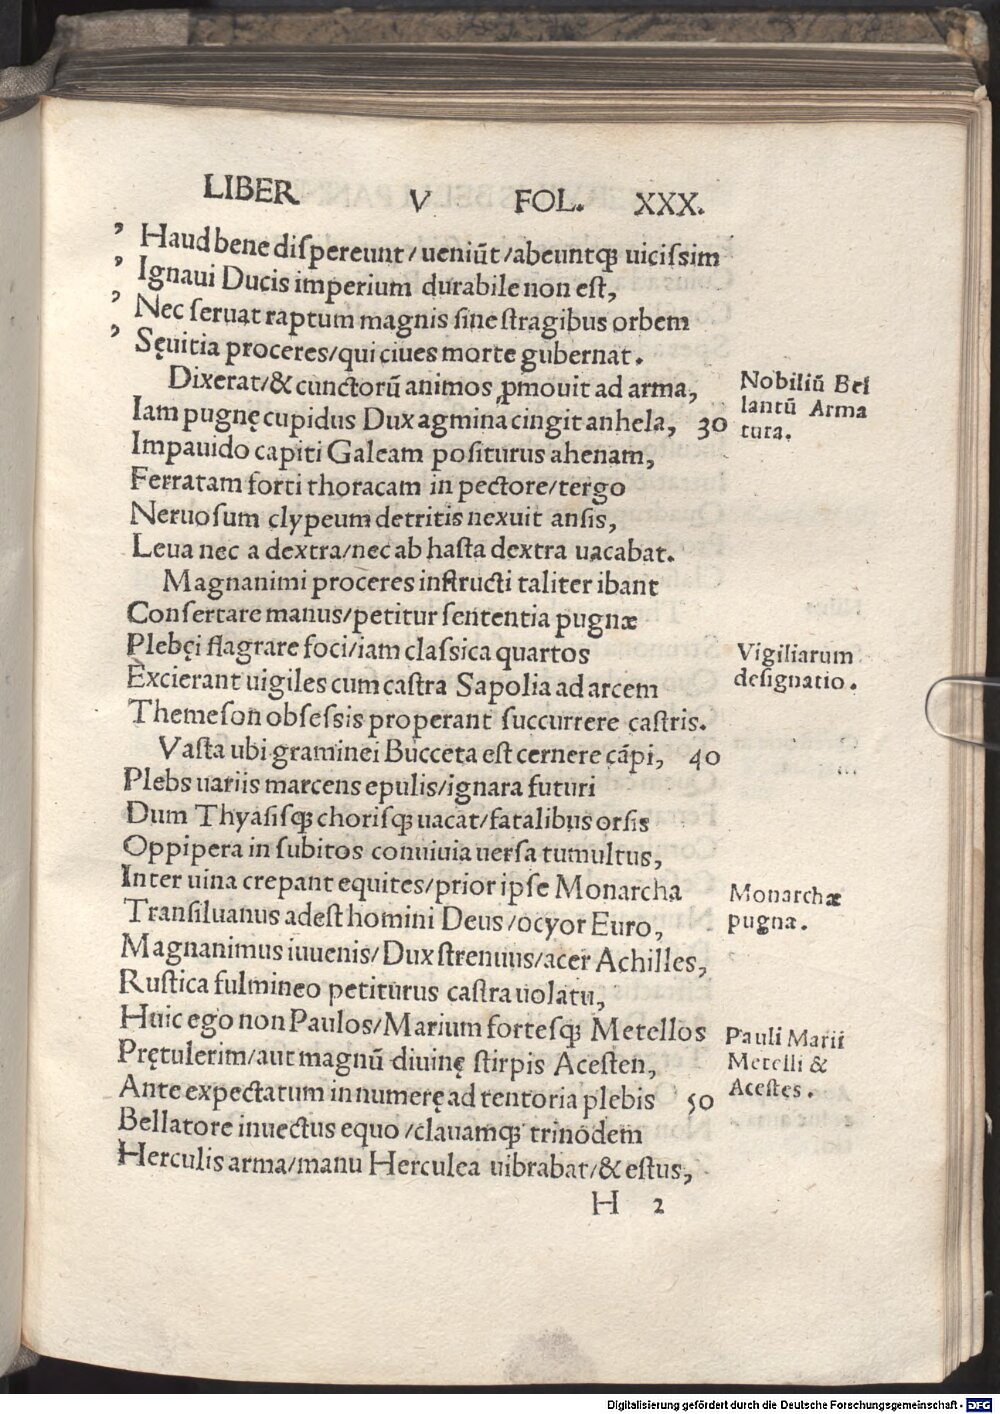 LIBER V FOL. XXX.
, Haud bene dispereunt/ ueniũt/abeuntqꝫ uicissim
, Ignaui Ducis imperium durabile non est,
, Nec seruat raptum magnis sine stragibus orbem
, Sęuitia proceres/qui ciues morte gubernat.
Dixerat/& cunctorũ animos ꝓmouit ad arma,
Nobiliũ Bel
lantũ Arma
tura.
Iam pugnę cupidus Dux agmina cingit anhela, 30
Impauido capiti Galeam positurus ahenam,
Ferratam forti thoracam in pectore/tergo
Neruosum clypeum detritis nexuit ansis,
Leua nec a dextra/nec ab hasta dextra uacabat.
Magnanimi proceres instructi taliter ibant
Consertare manus/petitur sententia pugnæ
Plebęi flagrare foci/iam classica quartos
Vigiliarum
designatio.
Excierant uigiles cum castra Sapolia ad arcem
Themeson obsessis properant succurrere castris.
Vasta ubi graminei Bucceta est cernere cãpi, 40
Plebs uariis marcens epulis/ignara futuri
Dum Thyasisqꝫ chorisqꝫ uacat/fatalibus orsis
Oppipera in subitos conuiuia uersa tumultus,
Inter uina crepant equites/prior ipse Monarcha
Monarchæ
pugna.
Transiluanus adest homini Deus/ocyor Euro,
Magnanimus iuuenis/Dux strenuus/acer Achilles,
Rustica fulmineo petiturus castra uolatu,
Huic ego non Paulos/Marium fortesqꝫ Metellos
Pauli Marii
Metelli &
Acestes.
Prętulerim/aut magnũ diuinę stirpis Acesten,
Ante expectatum innumerę ad tentoria plebis 50
Bellatore inuectus equo/clauamqꝫ trinodem
Herculis arma/manu Herculea uibrabat/& estus,
H 2
Digitalisierung gefördert durch die Deutsche Forschungsgemeinschaft - DFG